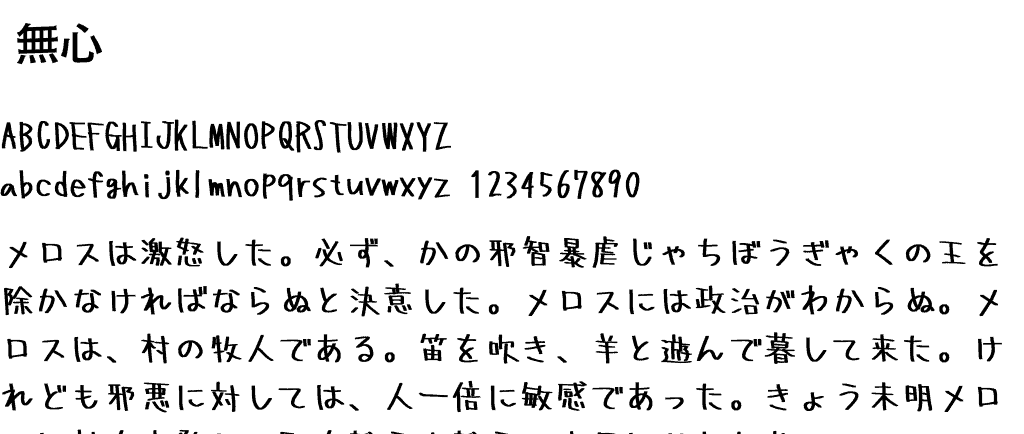 無心
ABCDEFGHIJKLMNOPQRSTUVWXYZ
abcdefghijklmnopqrstuvwxyz 1234567890
メロスは激怒した。必ず、かの邪智暴虐じゃちぼうぎゃくの王を
除かなければならぬと決意した。メロスには政治がわからぬ。メ
ロスは、村の牧人である。笛を吹き、羊と遊んで暮して来た。け
れども邪悪に対しては、人一倍に敏感であった。きょう未明メロ